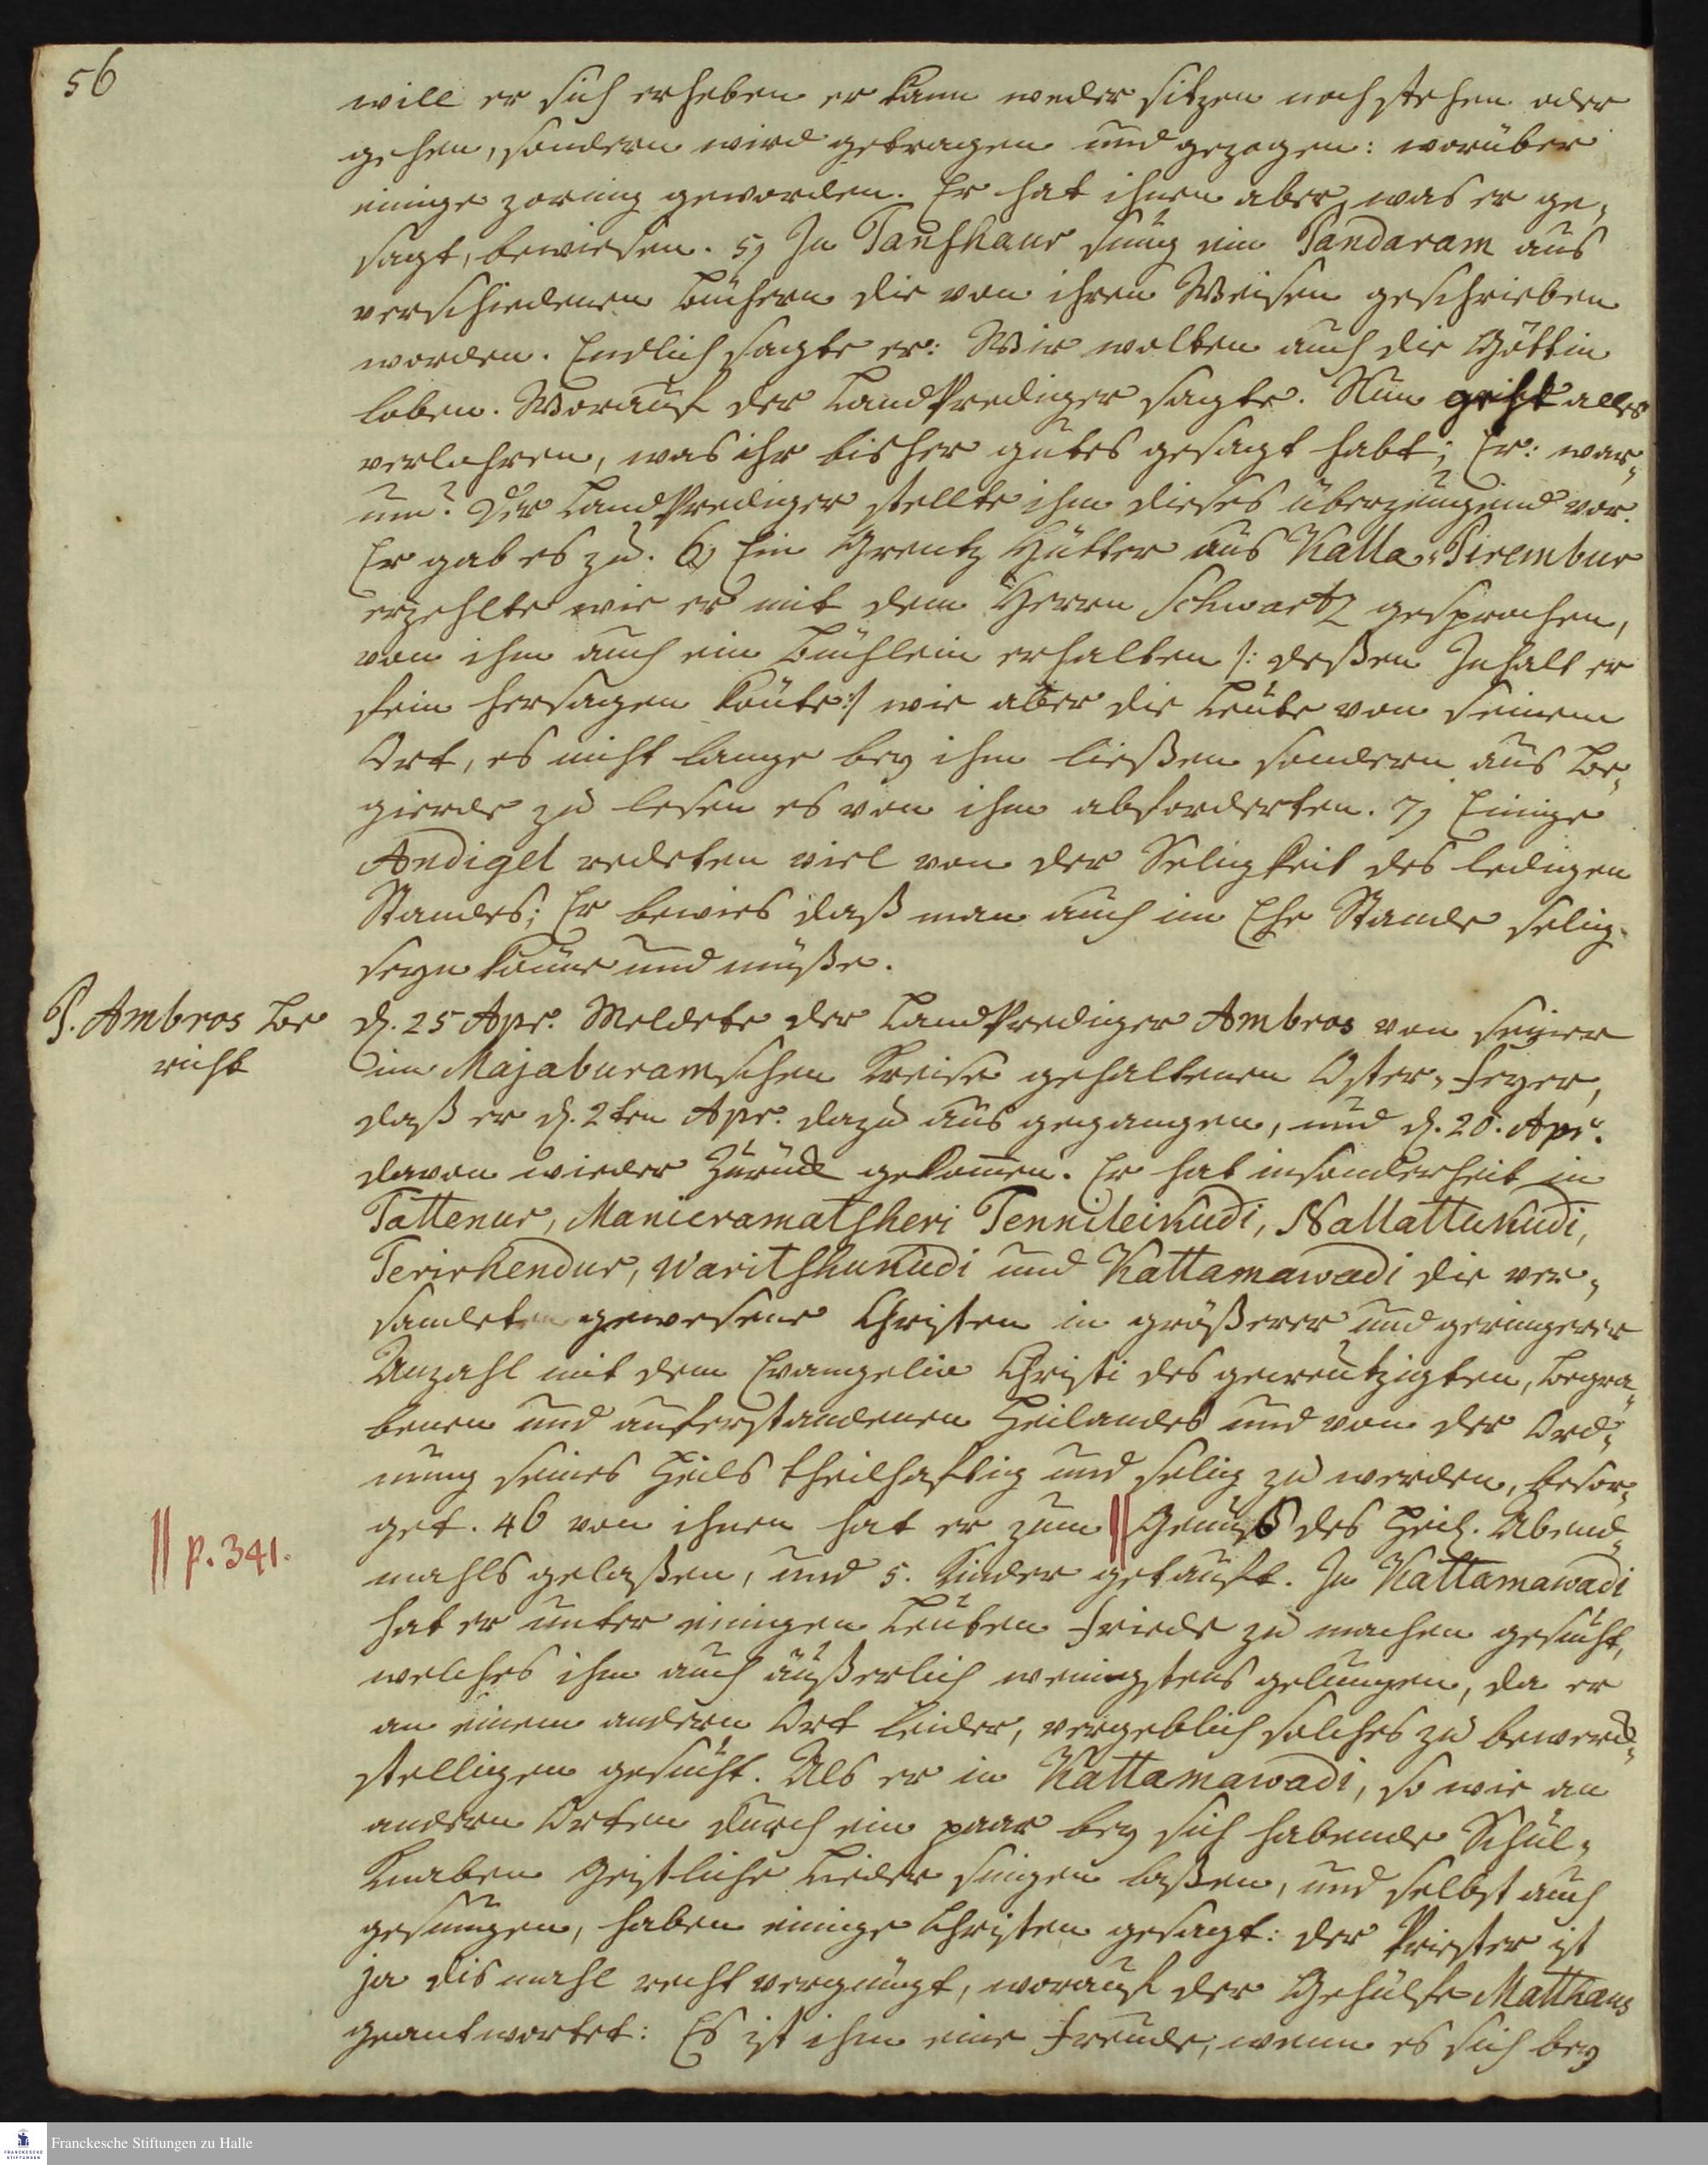 56
will er sich erheben er kann weder sitzen noch stehen oder
gehen, sondern wird getragen und gezogen: worüber
einige zornig geworden. Er hat ihnen aber, was er ge-
sagt, bewiesen. 5) In Tanshaur sung ein Pandaram aus
verschiedenen Büchern die von ihren Weisen geschrieben
worden. Endlich sagte er: Wir wolten auch die Göttin
loben. Worauf der LandPrediger sagte. Nun geht alles
verlohren, was ihr bisher gutes gesagt habt; Er: war-
um? Der LandPrediger stellte ihm dieses überzeugend vor.
Er gab es zu. 6) Ein Grentz Hütter aus Kalla-Pirembur
erzehlte wie er mit dem Herrn Schwartz gesprochen,
von ihm auch ein Büchlein erhalten /: deßen Inhalt er
fein hersagen konte :/ wie aber die Leute von seinem
Ort, es nicht lange bey ihm ließen sondern aus Be-
gierde zu lesen es von ihm abforderten. 7) Einige
Andigel redeten viel von der Seligkeit des ledigen
Standes; Er bewies daß man auch im Ehe Stande selig
seyn könne und müße.
P. Ambros Be
richt
d. 25 Apr. Meldete der LandPrediger Ambros von seiner
im Majaburamschen Kreise gehaltenen Oster-Feyer,
daß er d. 2ten Apr. dazu aus gegangen, und d. 20. Apr.
davon wieder Zurück gekommen. Er hat insonderheit in
Tattenur, Manicramatsheri Tennileikudi, Nallattukudi,
Terirhendur, Waritshukudi und Kattamawadi die ver-
samleten gewesene Christen in größerer und geringerer
Anzahl mit dem Evangelio Christi des gecreutzigten, begra-
benen und auferstandenen Heilandes und von der Ord-
nung seines Heils theilhaftig und selig zu werden, besor-
get. 46 von ihnen hat er zum || Genuß des Heil. Abend-
|| p. 341.
mahls gelaßen, und 5. Kinder getauft. In Kattamawadi
hat er unter einigen Leuten Friede zu machen gesucht,
welches ihm auch äußerlich wenigstens gelungen, da er
an einem andern Ort leider, vergeblich solches zu bewerck-
stelligen gesucht. Als er in Kattamawadi, so wie an
andern Orten durch ein paar bey sich habende Schul-
Knaben Geistliche Lieder singen laßen, und selbst auch
gesungen, haben einige Christen gesagt: der Priester ist
ja dis mahl recht vergnügt, worauf der Gehülfe Matthäus
geantwortet: Es ist ihm eine Freude, wenn es sich bey
FRANCKESCHE STIFTUNGEN
Franckesche Stiftungen zu Halle